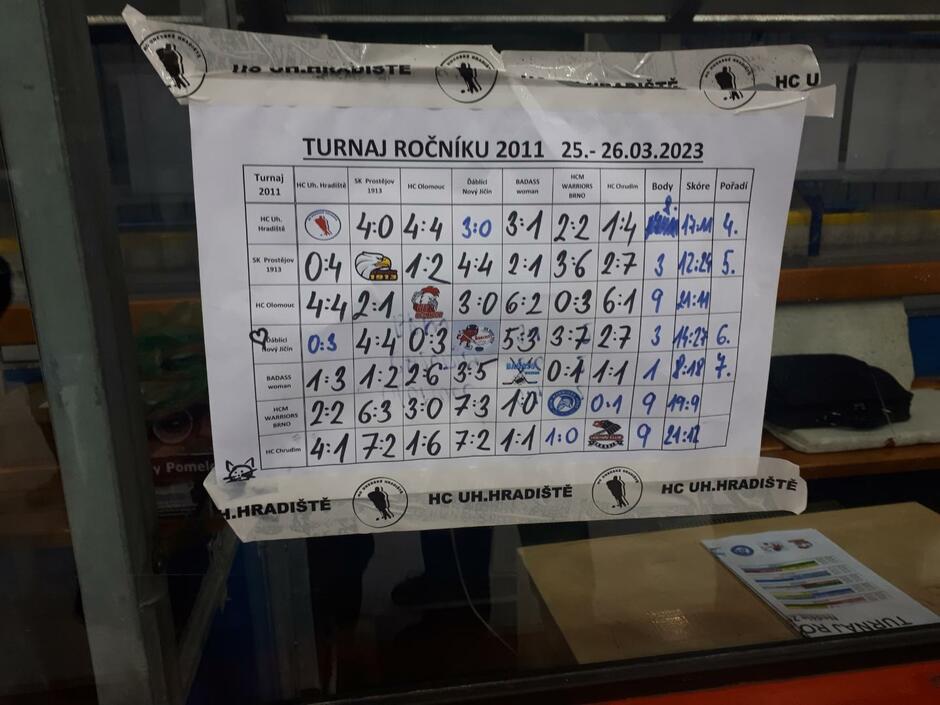 HC UH.HRADIŠTĚ
HC UH.HRADIŠTĚ
HC U
TURNAJ ROČNÍKU 2011 25.- 26.03.2023
Turnaj 2011 HC Uh. Hradiště SK Prostějov 1913 HC Olomouc Ďáblíci Nový Jičín BADASS woman HCM WARRIORS BRNO HC Chrudim Body Skóre Pořadí
HC Uh. Hradiště 4:0 4:4 3:0 3:1 2:2 1:4 8. 17:11 4.
SK Prostějov 1913 0:4 1913 1:2 4:4 2:1 3:6 2:7 3 12:24 5.
HC Olomouc 4:4 2:1 3:0 6:2 0:3 6:1 9 21:11
Ďáblíci Nový Jičín 0:3 4:4 0:3 5:3 3:7 2:7 3 14:27 6.
BADASS woman 1:3 1:2 2:6 3:5 0:1 1:1 1 8:18 7.
HCM WARRIORS BRNO 2:2 6:3 3:0 7:3 1:0 0:1 9 19:9
HC Chrudim 4:1 7:2 1:6 7:2 1:1 1:0 9 21:12
H.HRADIŠTĚ
HC UH.HRADIŠTĚ
HC UH.HRADIŠTĚ
y Pomel
TURNAJ RO